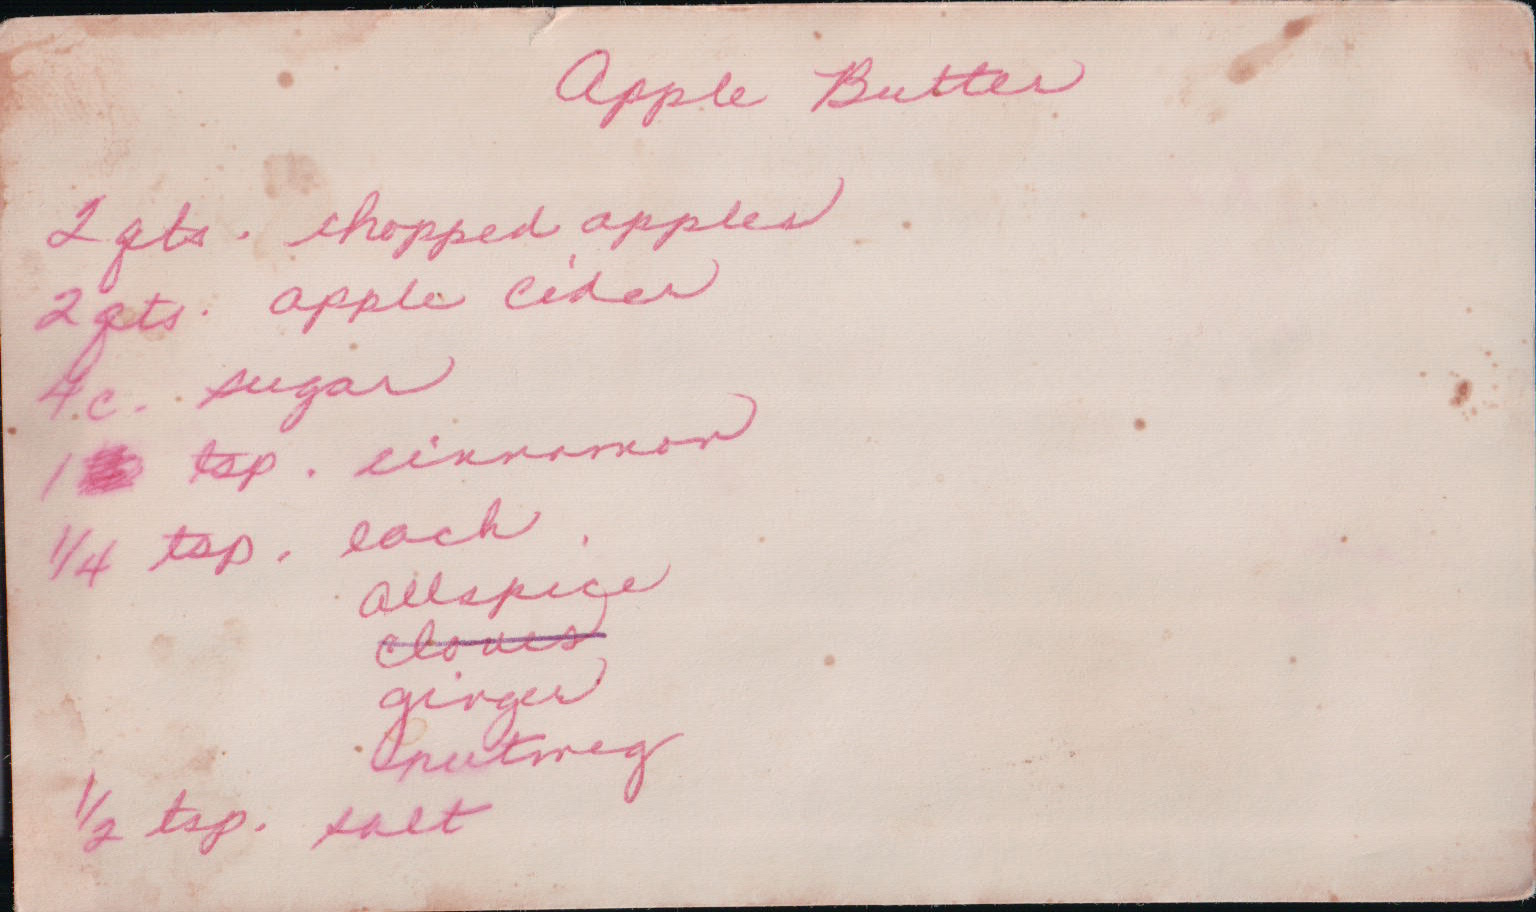 Apple Butter
2 qts. chopped apples
2 qts. apple cider
4 c. sugar
1 tsp. cinnamon
1/4 tsp. each
allspice
cloves
ginger
nutmeg
1/2 tsp. salt